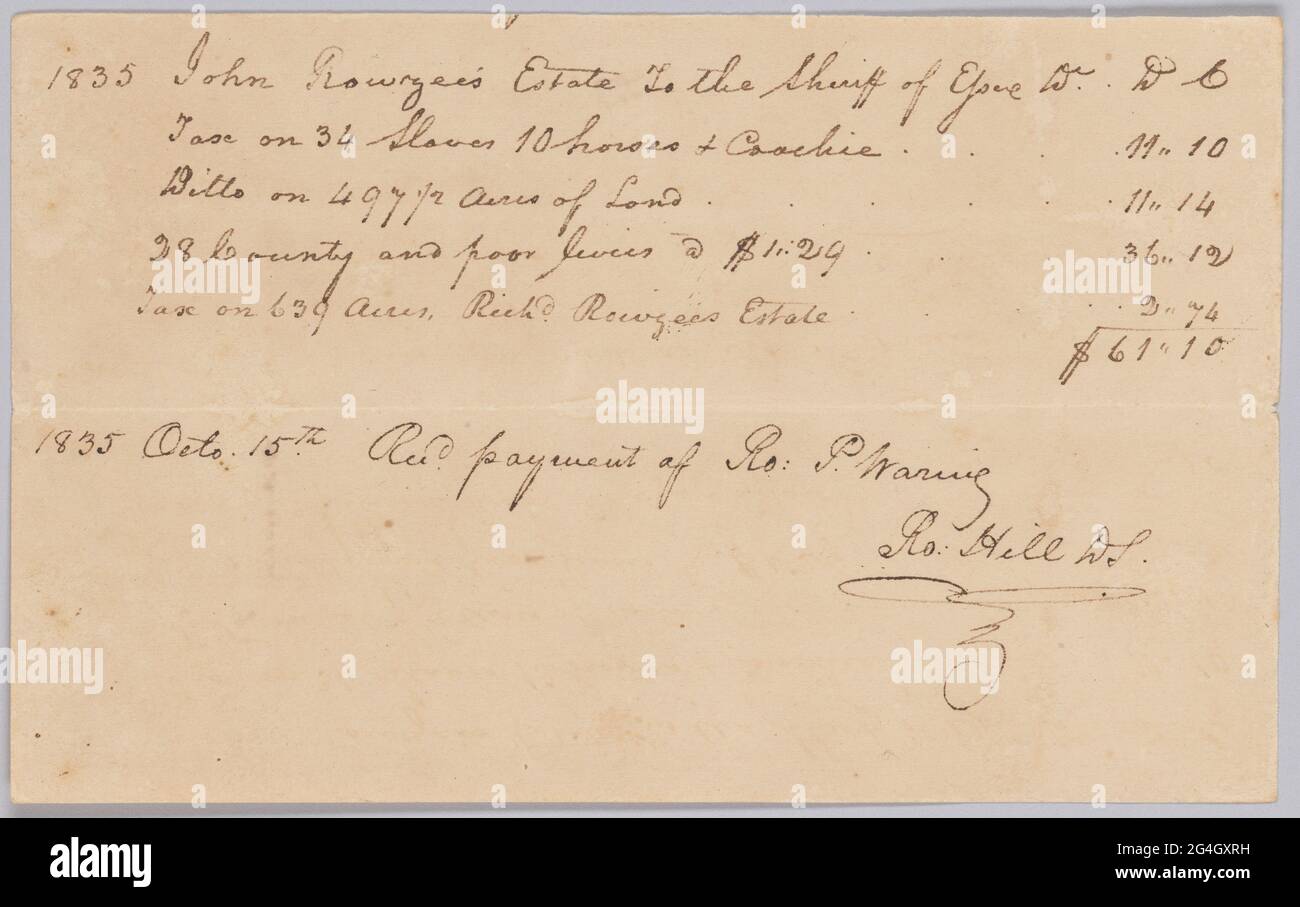 1835 John Rowzee's Estate To the Sheriff of Essex Dr. D C
Tax on 34 Slaves 10 horses & Coachie . . . . 11,, 10
Ditto on 497 1/2 Acres of Land . . . . . 11,, 14
28 County and poor levies @ $1..29 . . 36,, 12
Tax on 639 Acres, Richd Rowzee's Estate . . . 2,, 74
$ 61,, 10
1835 Octo. 15th. Recd payment of Ro: P. Waring
Ro: Hill DS.
alamy
Image ID: 2G4GXRH
www.alamy.com